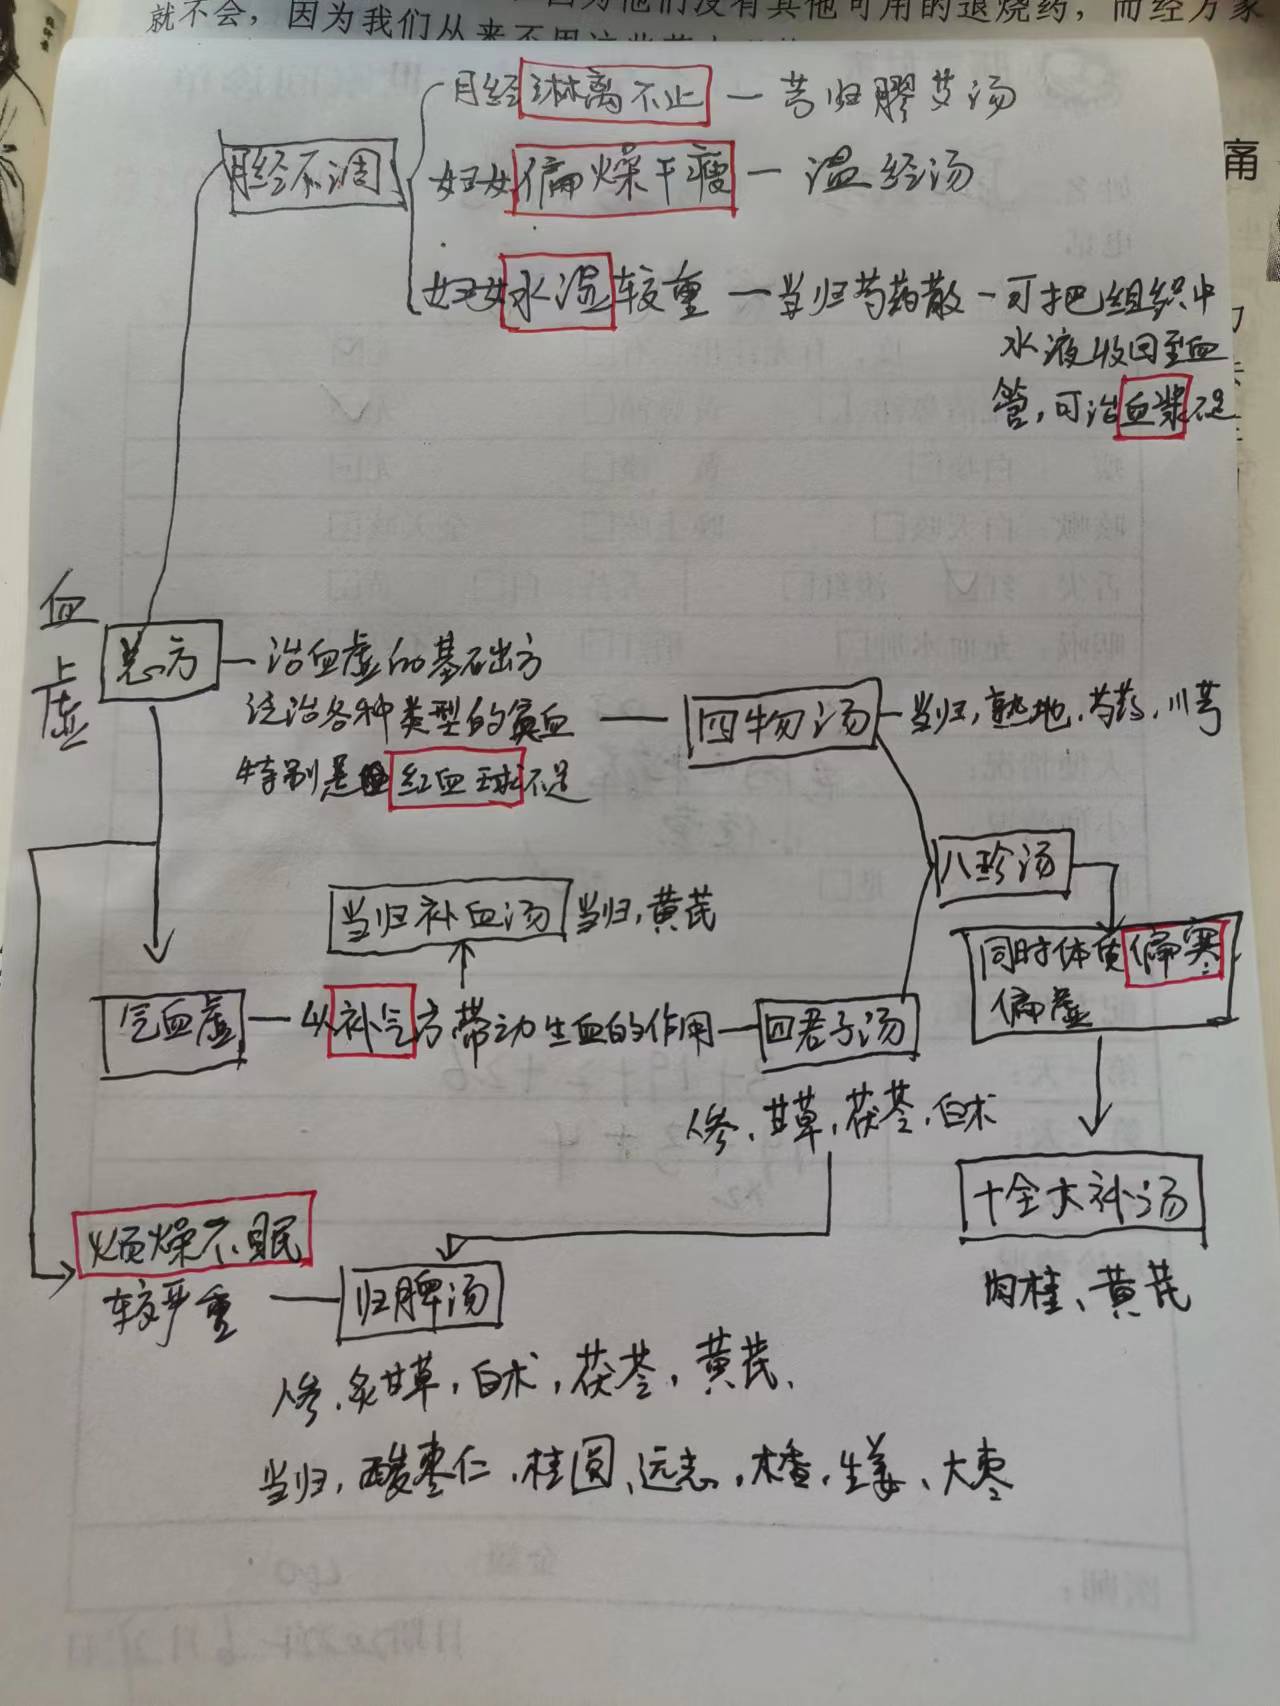 就不会，因为我们从来不用这些药
痛
月经不调
月经淋漓不止 — 芎归膠艾汤
妇女偏燥干瘦 — 温经汤
妇女水湿较重 — 当归芍药散 - 可把组织中
水液收回至血
管，可治血浆不足
血虚
总方 — 治血虚的基础方
统治各种类型的贫血 — 四物汤 — 当归，熟地，芍药，川芎
特别是红血球不足
八珍汤
当归补血汤 当归，黄芪
同时体质偏寒
偏虚
气血虚 — 从补气方带动生血的作用 — 四君子汤
人参、甘草，茯苓，白术
十全大补汤
肉桂、黄芪
烦燥不眠
较严重 — 归脾汤
人参、炙甘草，白术，茯苓，黄芪、
当归，酸枣仁，桂圆、远志，木香，生姜、大枣